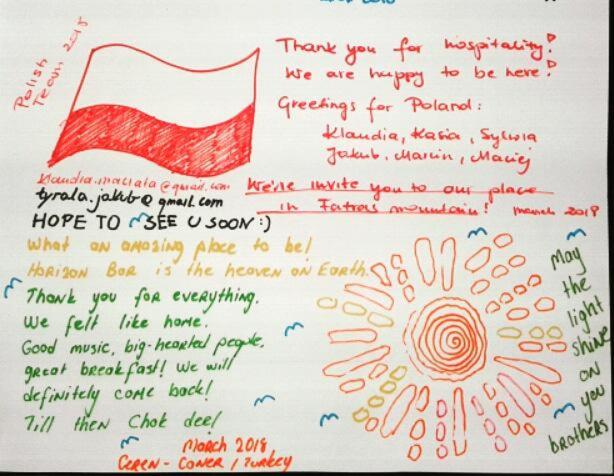 2018
Polish
Team 2018
Thank you for hospitality!
We are happy to be here!
Greetings for Poland:
Klaudia, Kasia, Sylwia
Jakub, Marcin, Maciej
We're invite you to our place
in Tatras mountain! march 2018
klaudia.maciata@gmail.com
tyrala.jakub@gmail.com
HOPE TO SEE U SOON :)
What an amazing place to be!
Horizon Bar is the heaven on Earth.
Thank you for everything.
We felt like home.
Good music, big-hearted people,
great breakfast! We will
definitely come back!
Till then Chok dee!
March 2018
CEREN - CONER / TURKEY
May
the
light
shine
on
you
brothers